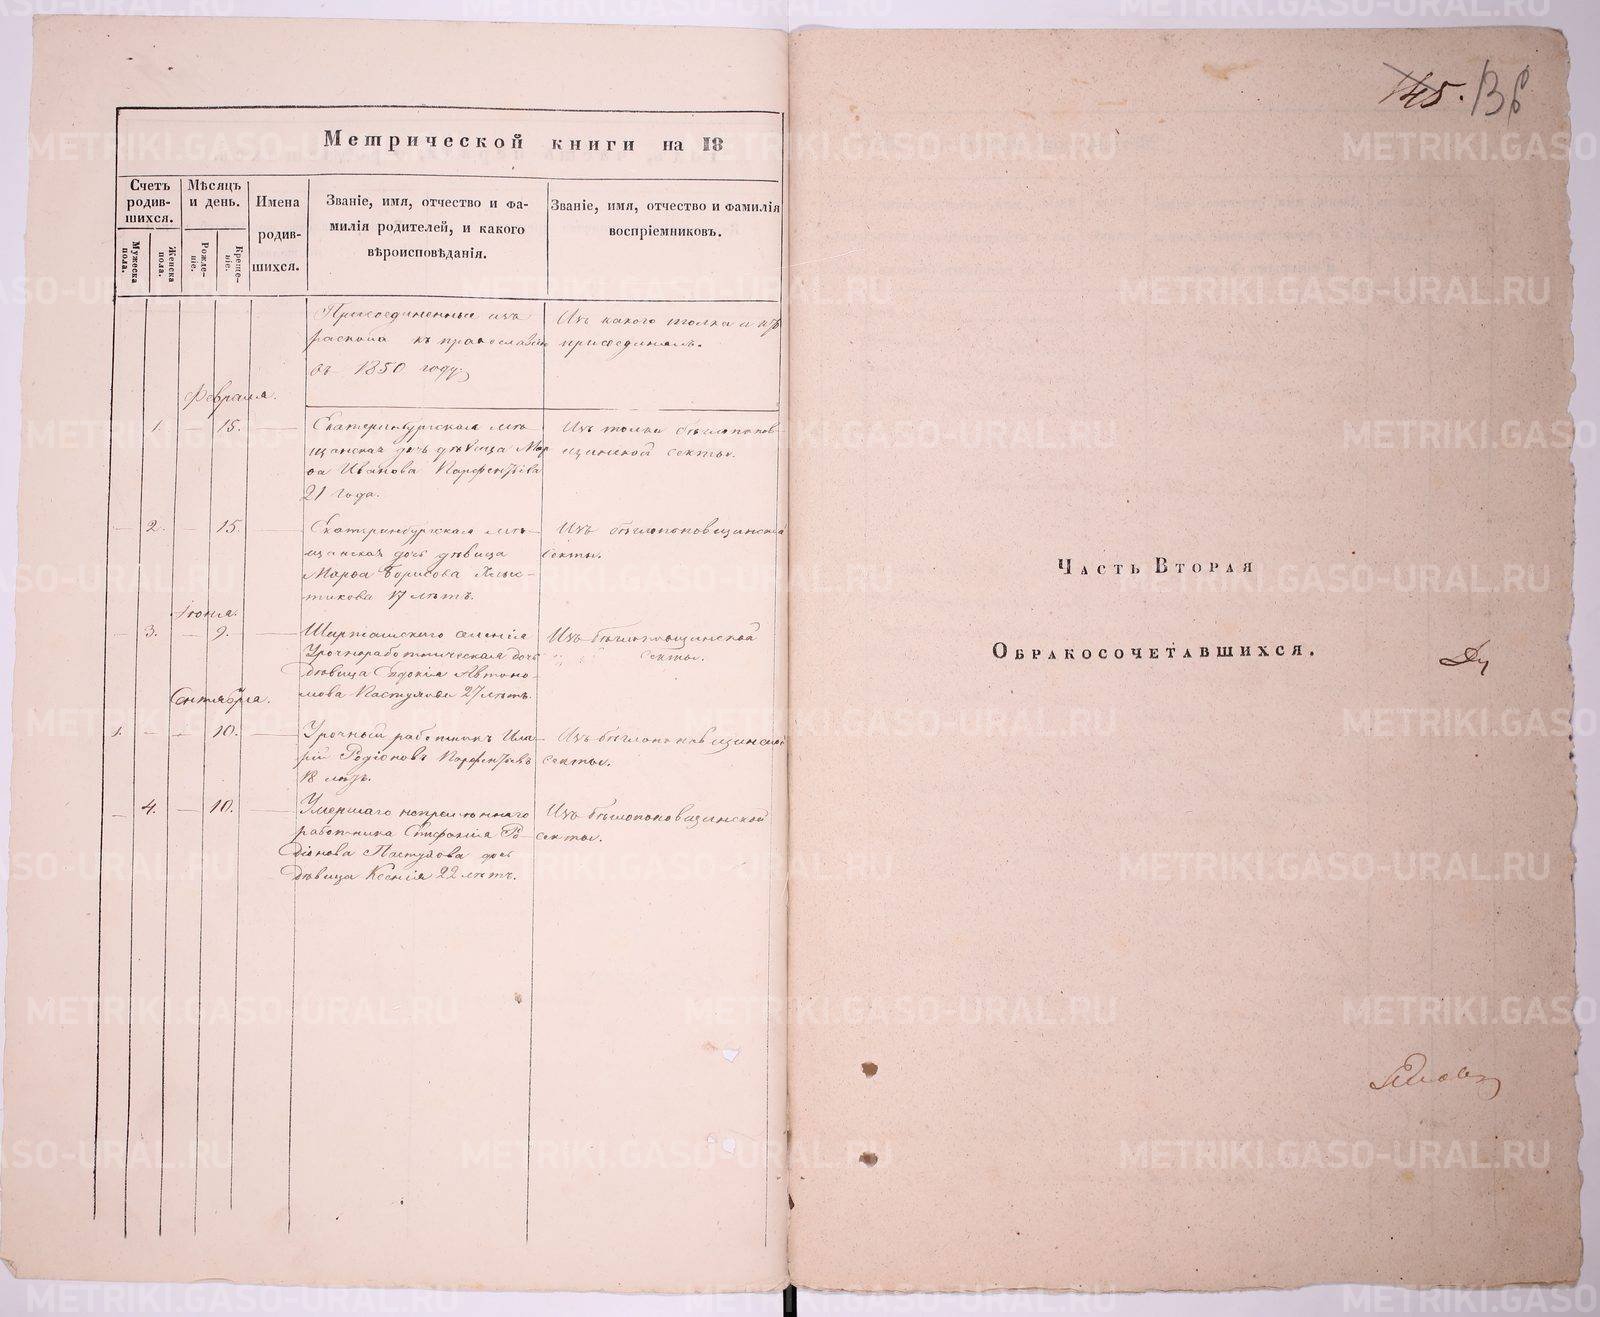 Метрической книги на 18
Счетъ родив-шихся.
Мужеска пола.
Женска пола.
Мѣсяцъ и день.
Рожде-ніе.
Креще-ніе.
Имена родив-шихся.
Званіе, имя, отчество и фа-
милія родителей, и какого
вѣроисповѣданія.
Званіе, имя, отчество и фамилія
воспріемниковъ.
Присоединенные изъ
раскола къ православію
въ 1850 году.
Изъ какого толка и кѣмъ
присоединены.
Февраля.
1. — 15. —
Екатеринбургская мѣ-
щанская дочь дѣвица Мар
ѳа Иванова Парфентьева
21 года.
Изъ толка бѣглопопов-
щинской секты.
— 2. 15. —
Екатеринбургская мѣ-
щанская дочь дѣвица
Марѳа Борисова
17 лѣтъ.
Изъ бѣглопоповщинской
секты.
Іюня.
— 3. — 9. —
Шарташскаго селенія
Урочноработническая дочь
дѣвица Евдокія Автоно-
мова Пастухова 27 лѣтъ.
Изъ бѣглопоповщинской
секты.
Сентября.
1. — — 10. —
Урочный работникъ Ила-
рій Родіоновъ Парфентьевъ
18 лѣтъ.
Изъ бѣглопоповщинской
секты.
— 4. — 10. —
Умершаго
работника Епифанія Ро-
діонова Пастухова дочь
дѣвица Ксенія 22 лѣтъ.
Изъ бѣглопоповщинской
секты.
145.
Часть Вторая
О бракосочетавшихся.
METRIKI.GASO-URAL.RU